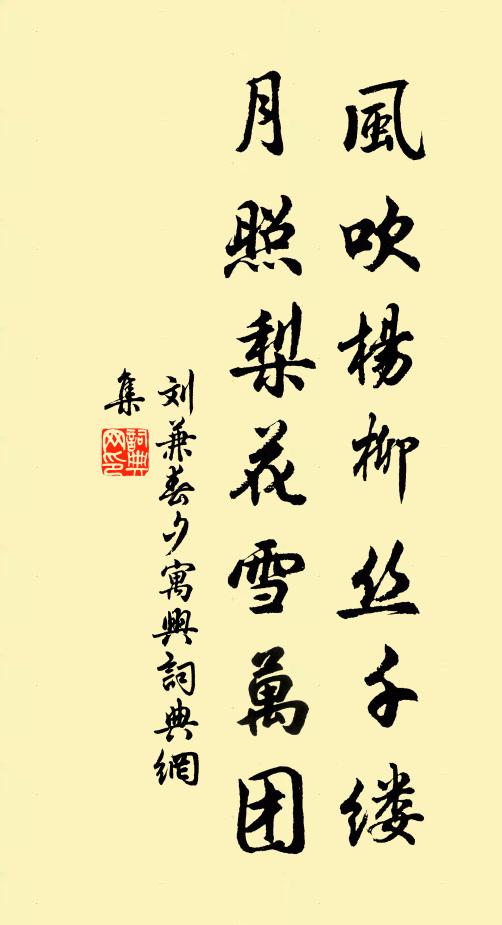 風吹楊柳丝千缕
月照梨花雪萬团
刘兼春夕寓興詞典網
集
詞典
网印